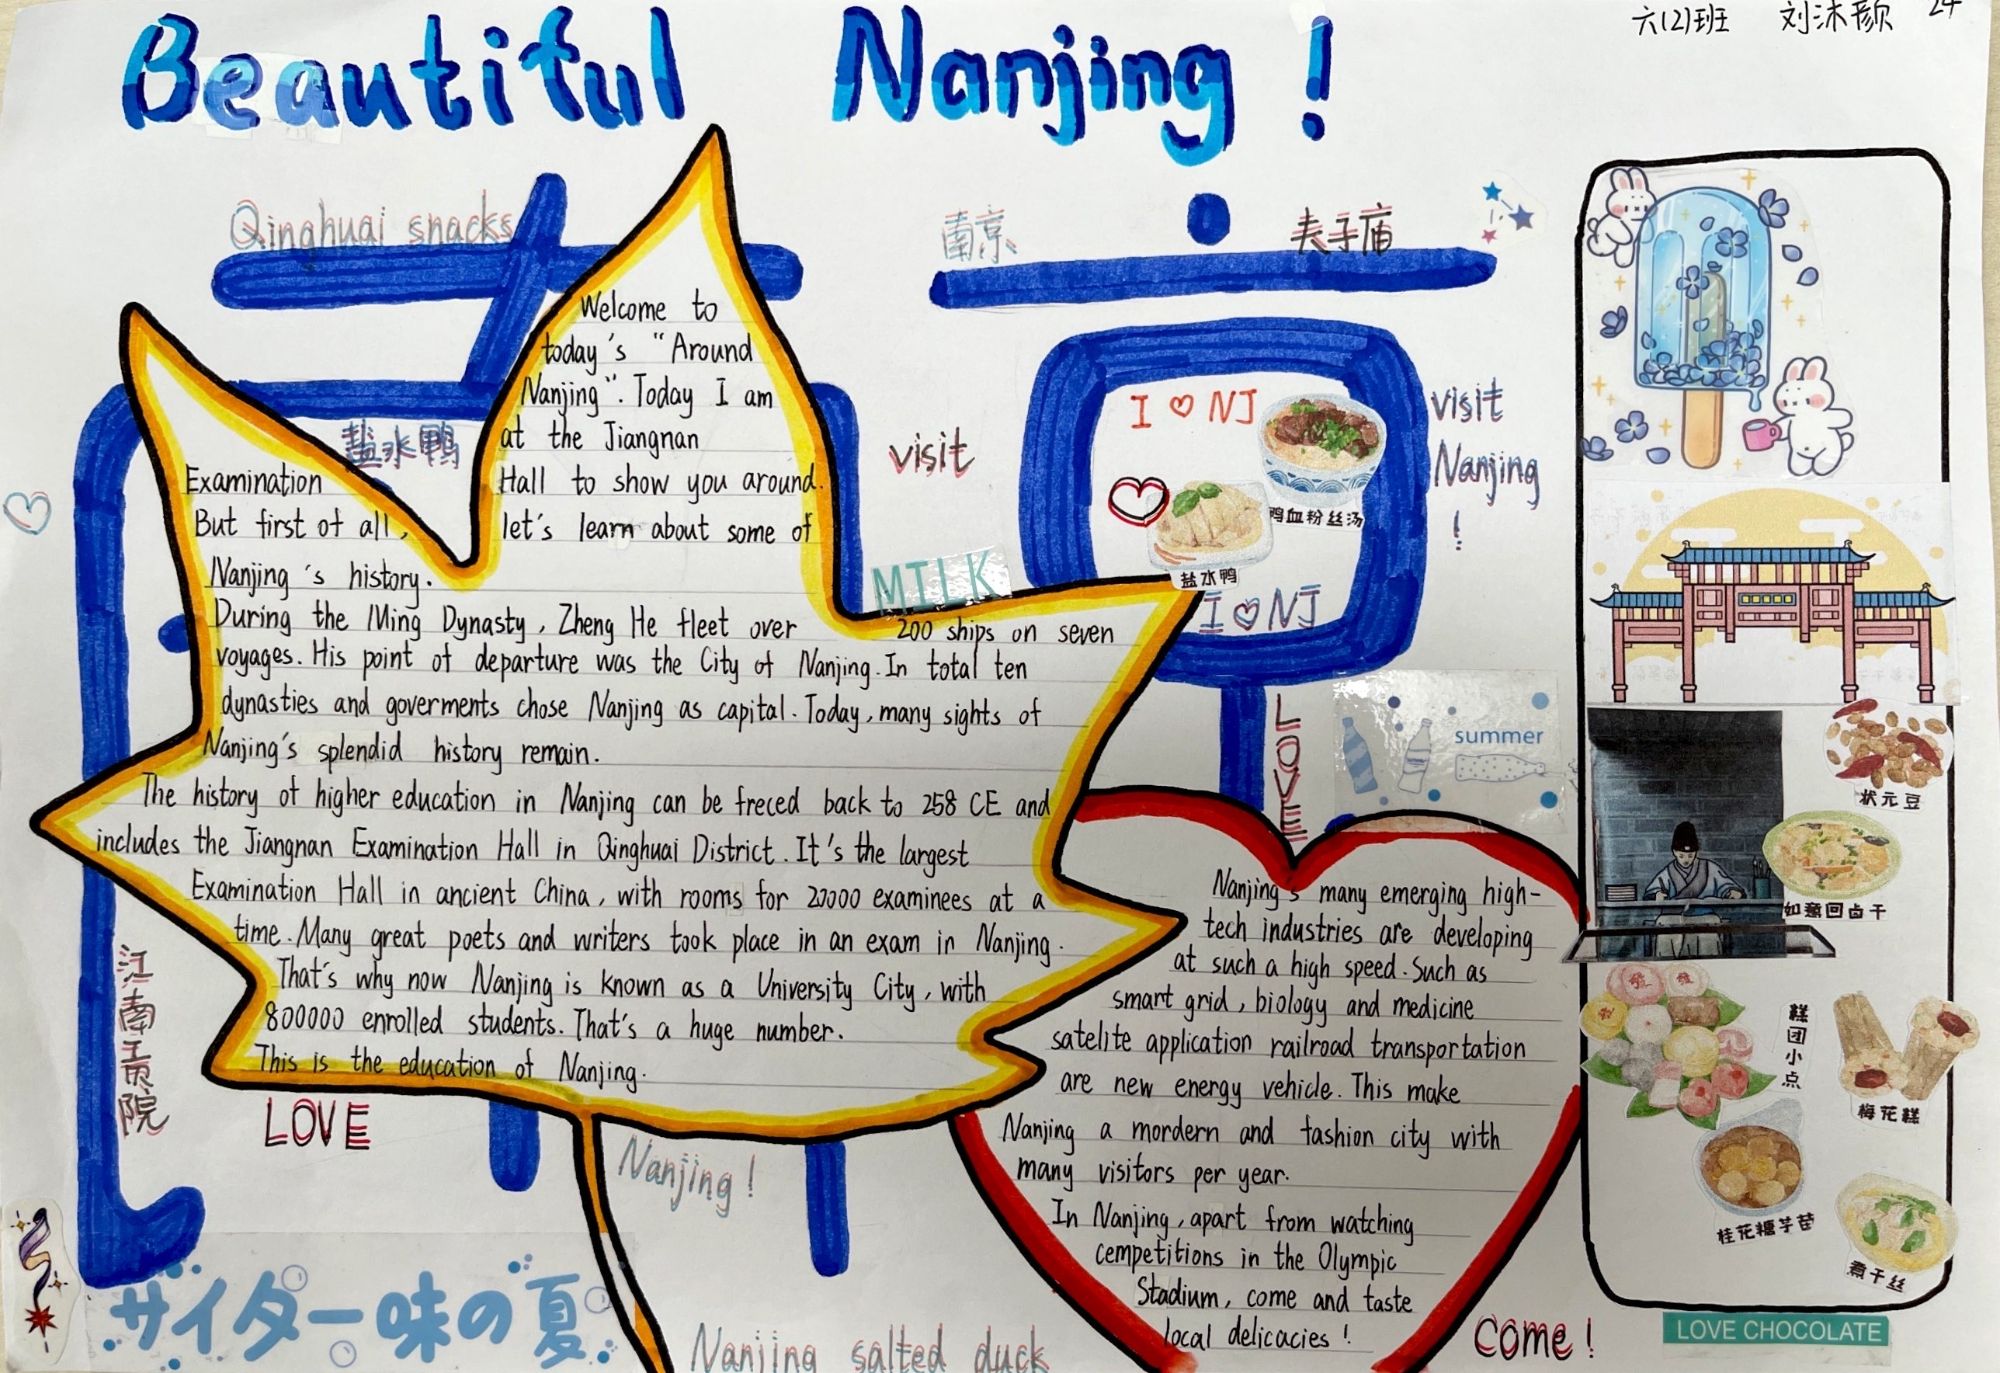 六(2)班 刘沐颜 24
Beautiful Nanjing!
Qinghuai snacks
南京
夫子庙
南京
盐水鸭
visit
I ♡ NJ
鸭血粉丝汤
盐水鸭
I ♡ NJ
visit
Nanjing
!
MILK
LOVE
summer
Welcome to
today's "Around
Nanjing". Today I am
at the Jiangnan
Examination Hall to show you around.
But first of all, let's learn about some of
Nanjing's history.
During the Ming Dynasty, Zheng He fleet over 200 ships on seven
voyages. His point of departure was the City of Nanjing. In total ten
dynasties and goverments chose Nanjing as capital. Today, many sights of
Nanjing's splendid history remain.
The history of higher education in Nanjing can be freced back to 258 CE and
includes the Jiangnan Examination Hall in Qinghuai District. It's the largest
Examination Hall in ancient China, with rooms for 20000 examinees at a
time. Many great poets and writers took place in an exam in Nanjing.
That's why now Nanjing is known as a University City, with
800000 enrolled students. That's a huge number.
This is the education of Nanjing.
江南贡院
LOVE
Nanjing!
サイダー味の夏
Nanjing salted duck
Nanjing's many emerging high-
tech industries are developing
at such a high speed. Such as
smart grid, biology and medicine
satelite application railroad transportation
are new energy vehicle. This make
Nanjing a mordern and fashion city with
many visitors per year.
In Nanjing, apart from watching
cempetitions in the Olympic
Stadium, come and taste
local delicacies!
come!
状元豆
如意回卤干
糕团小点
梅花糕
桂花糖芋苗
煮干丝
LOVE CHOCOLATE